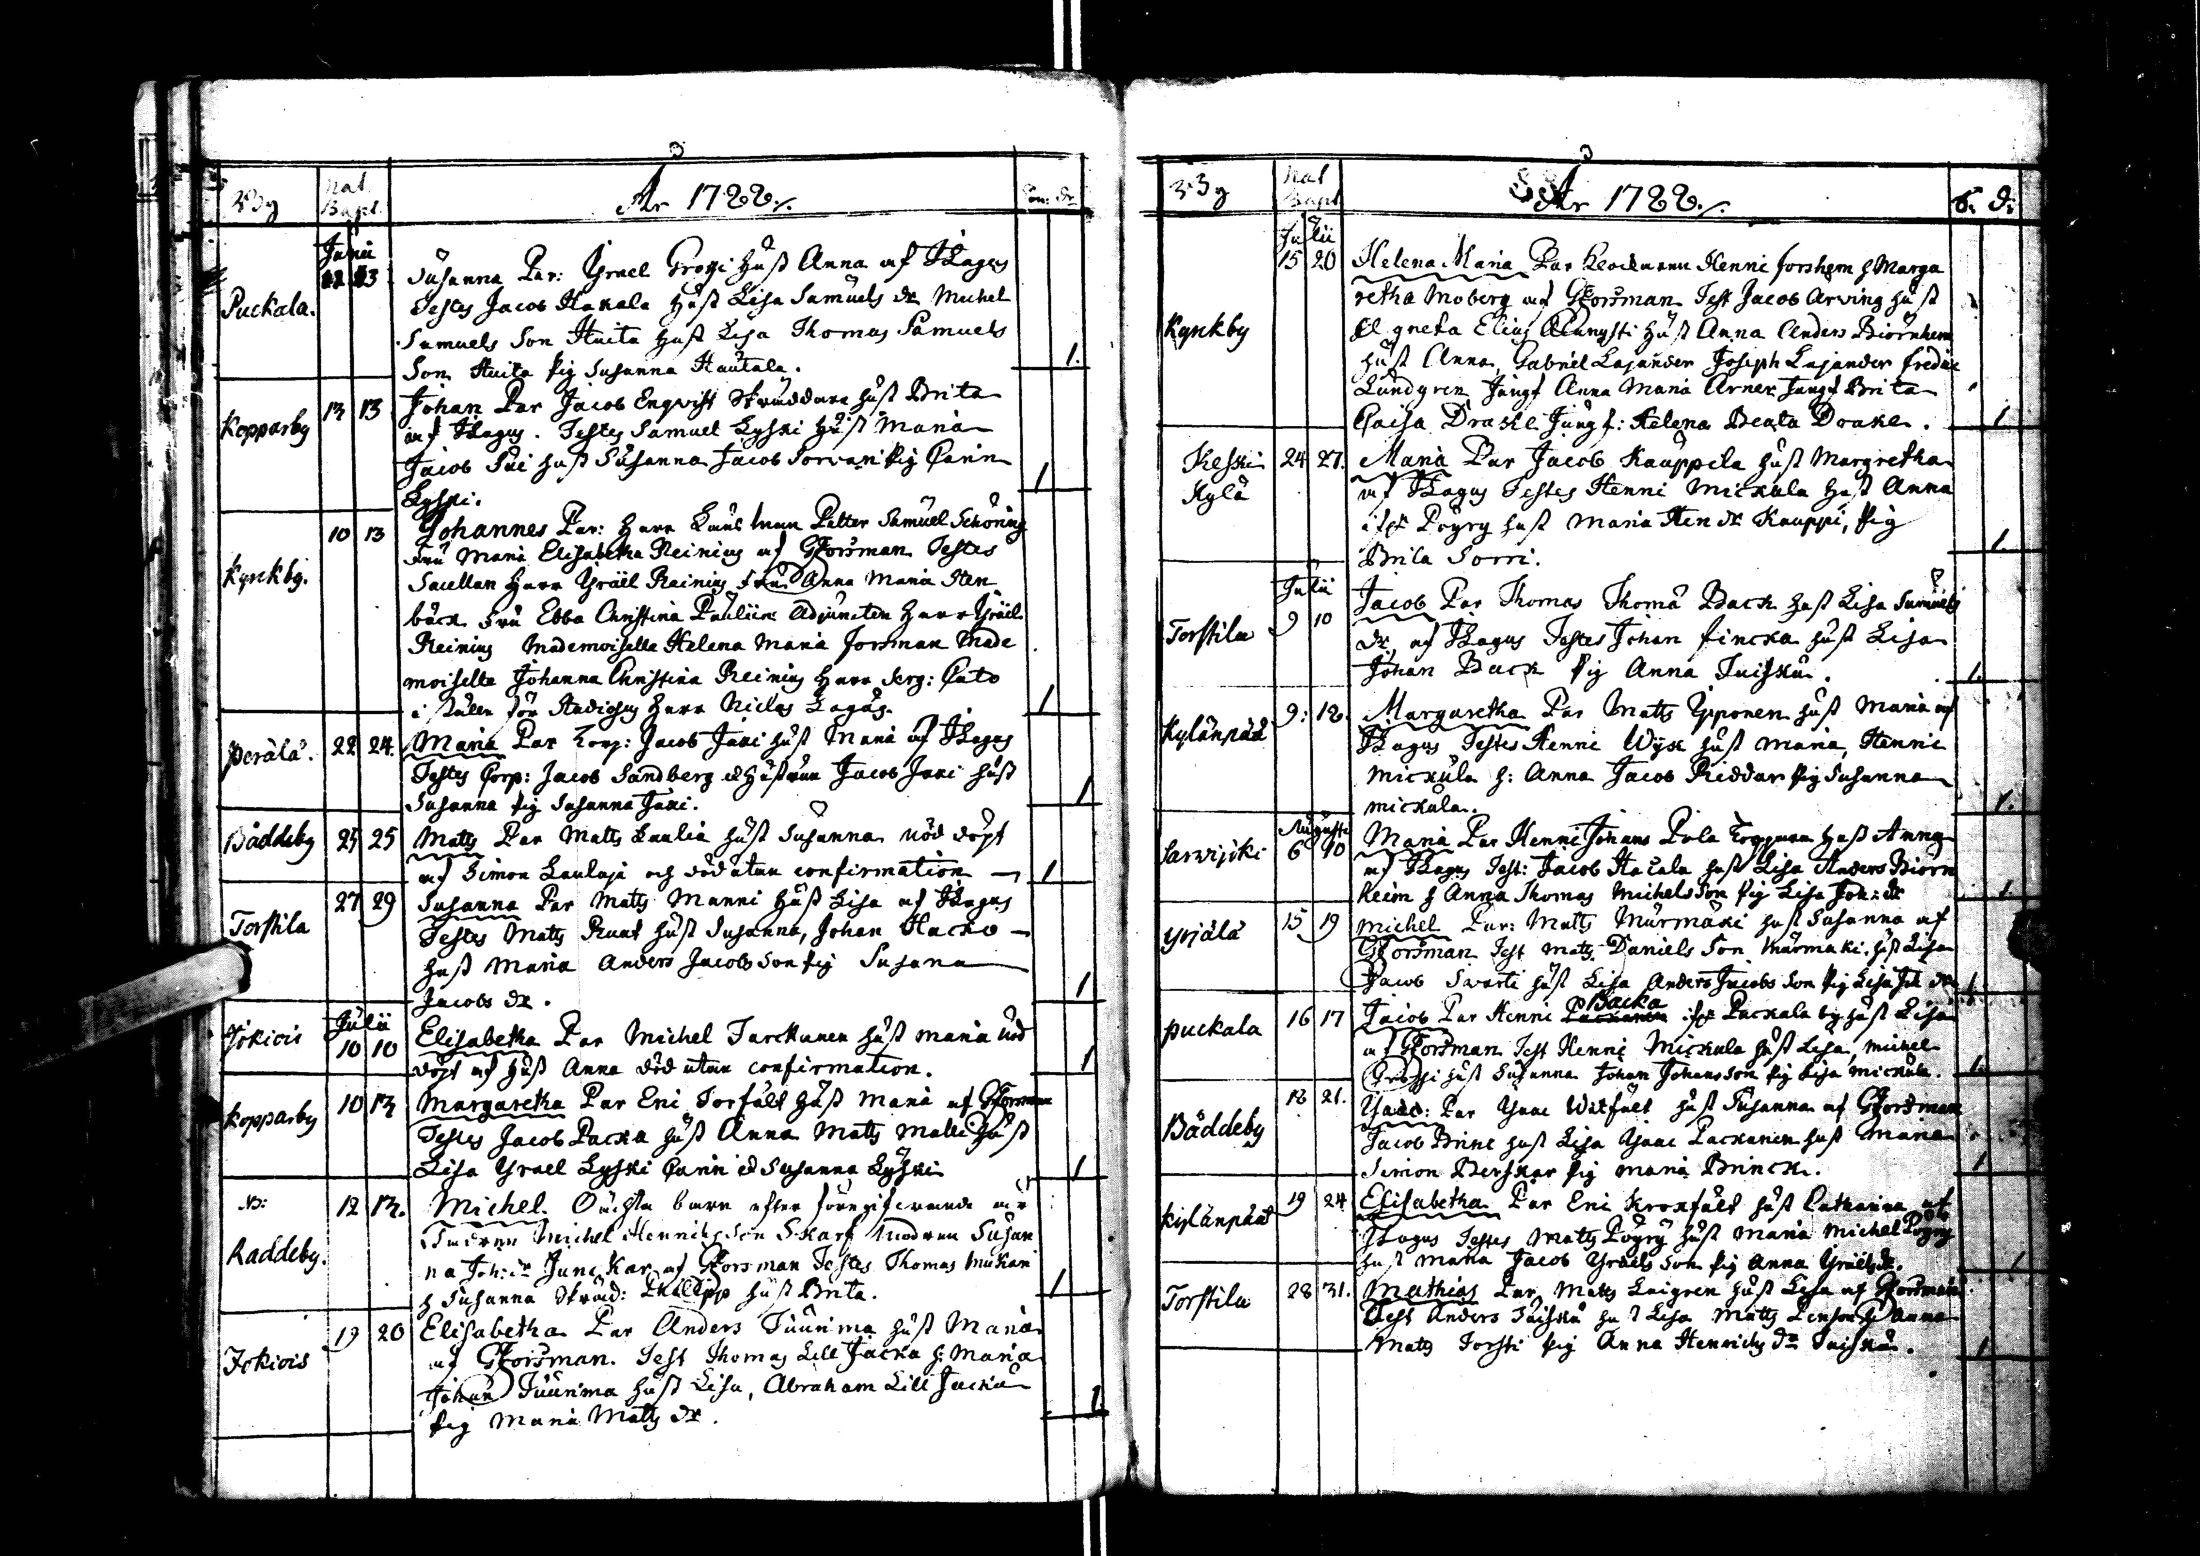 Nat.
Bapt.
År 1788.
Puckala.
Junii
13
Susanna Par: Israel Grossi hust Anna af HLagus
Testes Jacob Hakala hust Lisa Samuels dr Michel
Samuels Son Huita hust Lisa Thomas Samuels
Son Huita pig Susanna Hautala.
1.
Kopparby
13 13
Johan Par Jacob Enqvist Skräddare hust Brita
af HLagus. Testes Samuel Lyski hust Maria
Jacob Sui hust Susanna Jacob Sorvari pig Carin
Lyski.
1
Kyrckby.
10 13
Johannes Par: Herr Petter Samuel Schöning
Fru Maria Elisabetha Reinius af GForsman Testes
Sacellan Herr Israël Reinius Fru Anna Maria Sten
bäck Fru Ebba Christina Adjuncten Herr Israël
Reinius Mademoiselle Helena Maria Forsman Made
moiselle Johanna Christina Reinius Herr Serg: Cato
i stället för Studiosus Herr Niclas Lagus.
1
Perälä.
22 24.
Maria Par Korp: Jacob Jari hust Maria af HLagus
Testes Corp: Jacob Sandberg Hustrun Jacob Jari hust
Susanna pig Susanna Jari.
1
Båddeby
25 25
Matts Par Matts Laulia hust Susanna nöd döpt
af Simon Laulaja och död utan confirmation
1
Torstila
27 29
Susanna Par Matts Manni hust Lisa af HLagus
Testes Matts Ruut hust Susanna, Johan Hacko
hust Maria Anders Jacobs Son pig Susana
Jacobs dr.
1
Jokiois
Julii
10 10
Elisabetha Par Michel Turckunen hust Maria nöd
döpt af hust Anna död utan confirmation.
1
Kopparby
10 13
Margaretha Par Eric Torfält hust Maria af GForsman
Testes Jacob Packa hust Anna Matts Matti hust
Lisa Israel Lyski Carin Susanna Lyski
1
Nb:
Raddeby.
12 13.
Michel. Oächta barn efter föregifvande är
Fadren Michel Henrics Son Skarf Modren Susan
na Joh: dr Junckar af GForsman Testes Thomas Mukari
h Susanna Skräd: Philipp hust Brita.
1
Jokiois
19 20
Elisabetha Par Anders Tuurima hust Maria
af GForsman. Test Thomas Lill Jacka h: Maria
Johan Tuurima hust Lisa, Abraham Lill Jacka
pig Maria Matts dr.
1.
Nat
Bapt
År 1788.
Kyrckby
Julii
15 20
Helena Maria Par Klockaren Henric Forshem h Marga
retha Moberg af GForsman Test Jacob Arving hust
Agneta Elias hust Anna Anders Biörnhem
hust Anna, Gabriel Lajander Joseph Lajander Fredric
Lundgren Jungf Anna Maria Arner Jungf Brita
Caisa Drake Jungf: Helena Beata Drake.
1
Keski
Kylä
24 27.
Maria Par Jacob Kauppila hust Margretha
af HLagus Testes Henric Mickula hust Anna
Pöyry hust Maria Hen dr Kauppi, pig
Brita Sorri.
1.
Torstila
Julii
9 10
Jacob Par Thomas Thomä Back hust Lisa Samuels
dr. af HLagus Testes Johan Fincka hust Lisa
Johan Back pig Anna Tuisku.
1.
Kylänpää
9: 12.
Margaretha Par Matts Yiponen hust Maria af
HLagus Testes Henric Wyse hust Maria, Henric
Mickula h: Anna Jacob Riddar pig Susanna
Mickula.
1.
Sarvijoki
Augusti
6 10
Maria Par Henric Johans Pola hust Anna
af HLagus Test: Jacob Hacala hust Lisa Anders Biörn
heim h Anna Thomas Michels Son pig Lisa Joh: dr
1
Yrjälä
15 19
Michel Par: Matts Murmäki hust Susanna af
GForsman Test Matts Daniels Son Murmäki. hust Lisa
Jacob Svarti hust Lisa Anders Jacobs Son pig Lisa Joh dr
1
Puckala
16 17
Backa
Jacob Par Henric Puckala by hust Lisa
af GForsman Test Henric Mickula hust Lisa, Michel
Grossi hust Susanna Johan Johans Son pig Lisa Mickula.
1.
Båddeby
18 21.
Isaac: Par Isaac Witfält hust Susanna af GForsman
Jacob Brinc hust Lisa Isaac Packanen hust Maria
Simon Berskar pig Maria Brinck.
1
Kylänpää
19 24
Elisabetha Par Eric Kroxfält hust Catharina af
HLagus Testes Matts Pöyry hust Maria Michel Pöyry
hust Maria Jacob Israels Son pig Anna Israels dr.
1
Torstila
28 31.
Mathias Par Matts Luigren hust Lisa af GForsman
Test Anders Tuisku hust Lisa Matts Penson h Anna
Matts Torsti pig Anna Henrichs dr Tuisku.
1